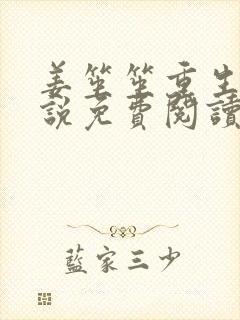 姜笙笙重生
說免費閱讀
藍家三少